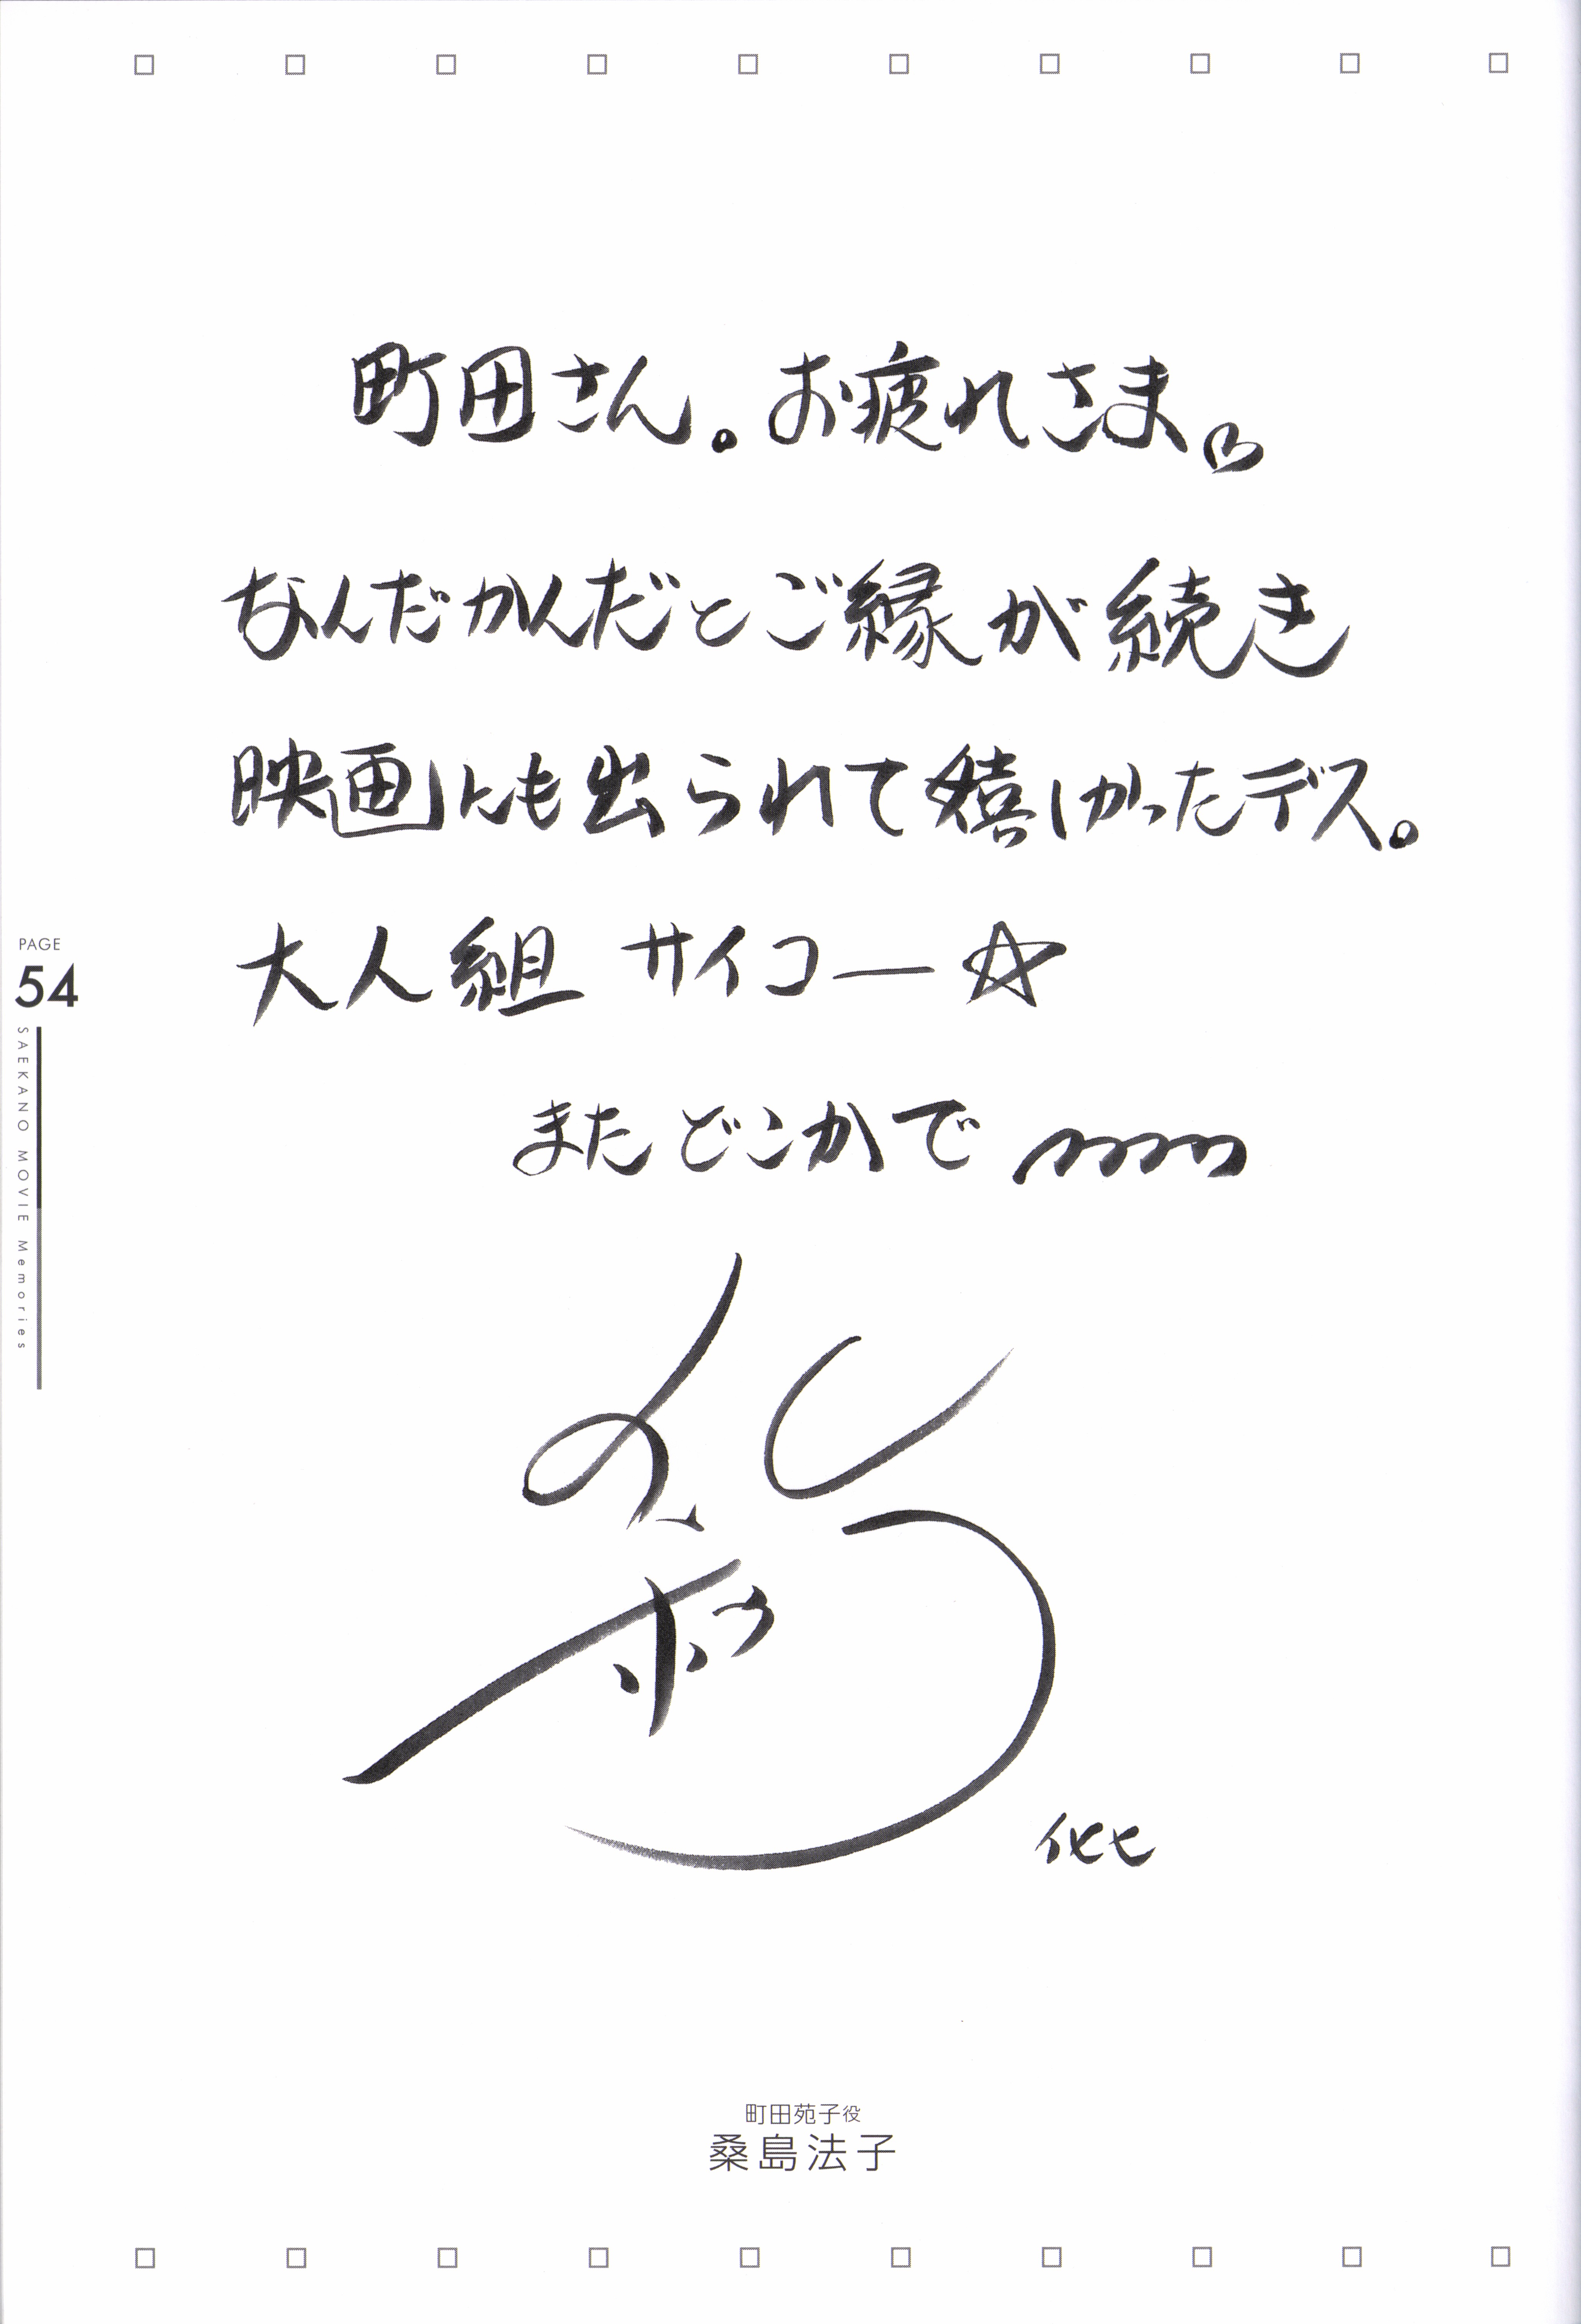 町田さん。お疲れさま。
なんだかんだとご縁が続き
映画にも出られて嬉しかったデス。
大人組 サイコー☆
またどこかで
PAGE
54
SAEKANO MOVIE Memories
町田苑子役
桑島法子